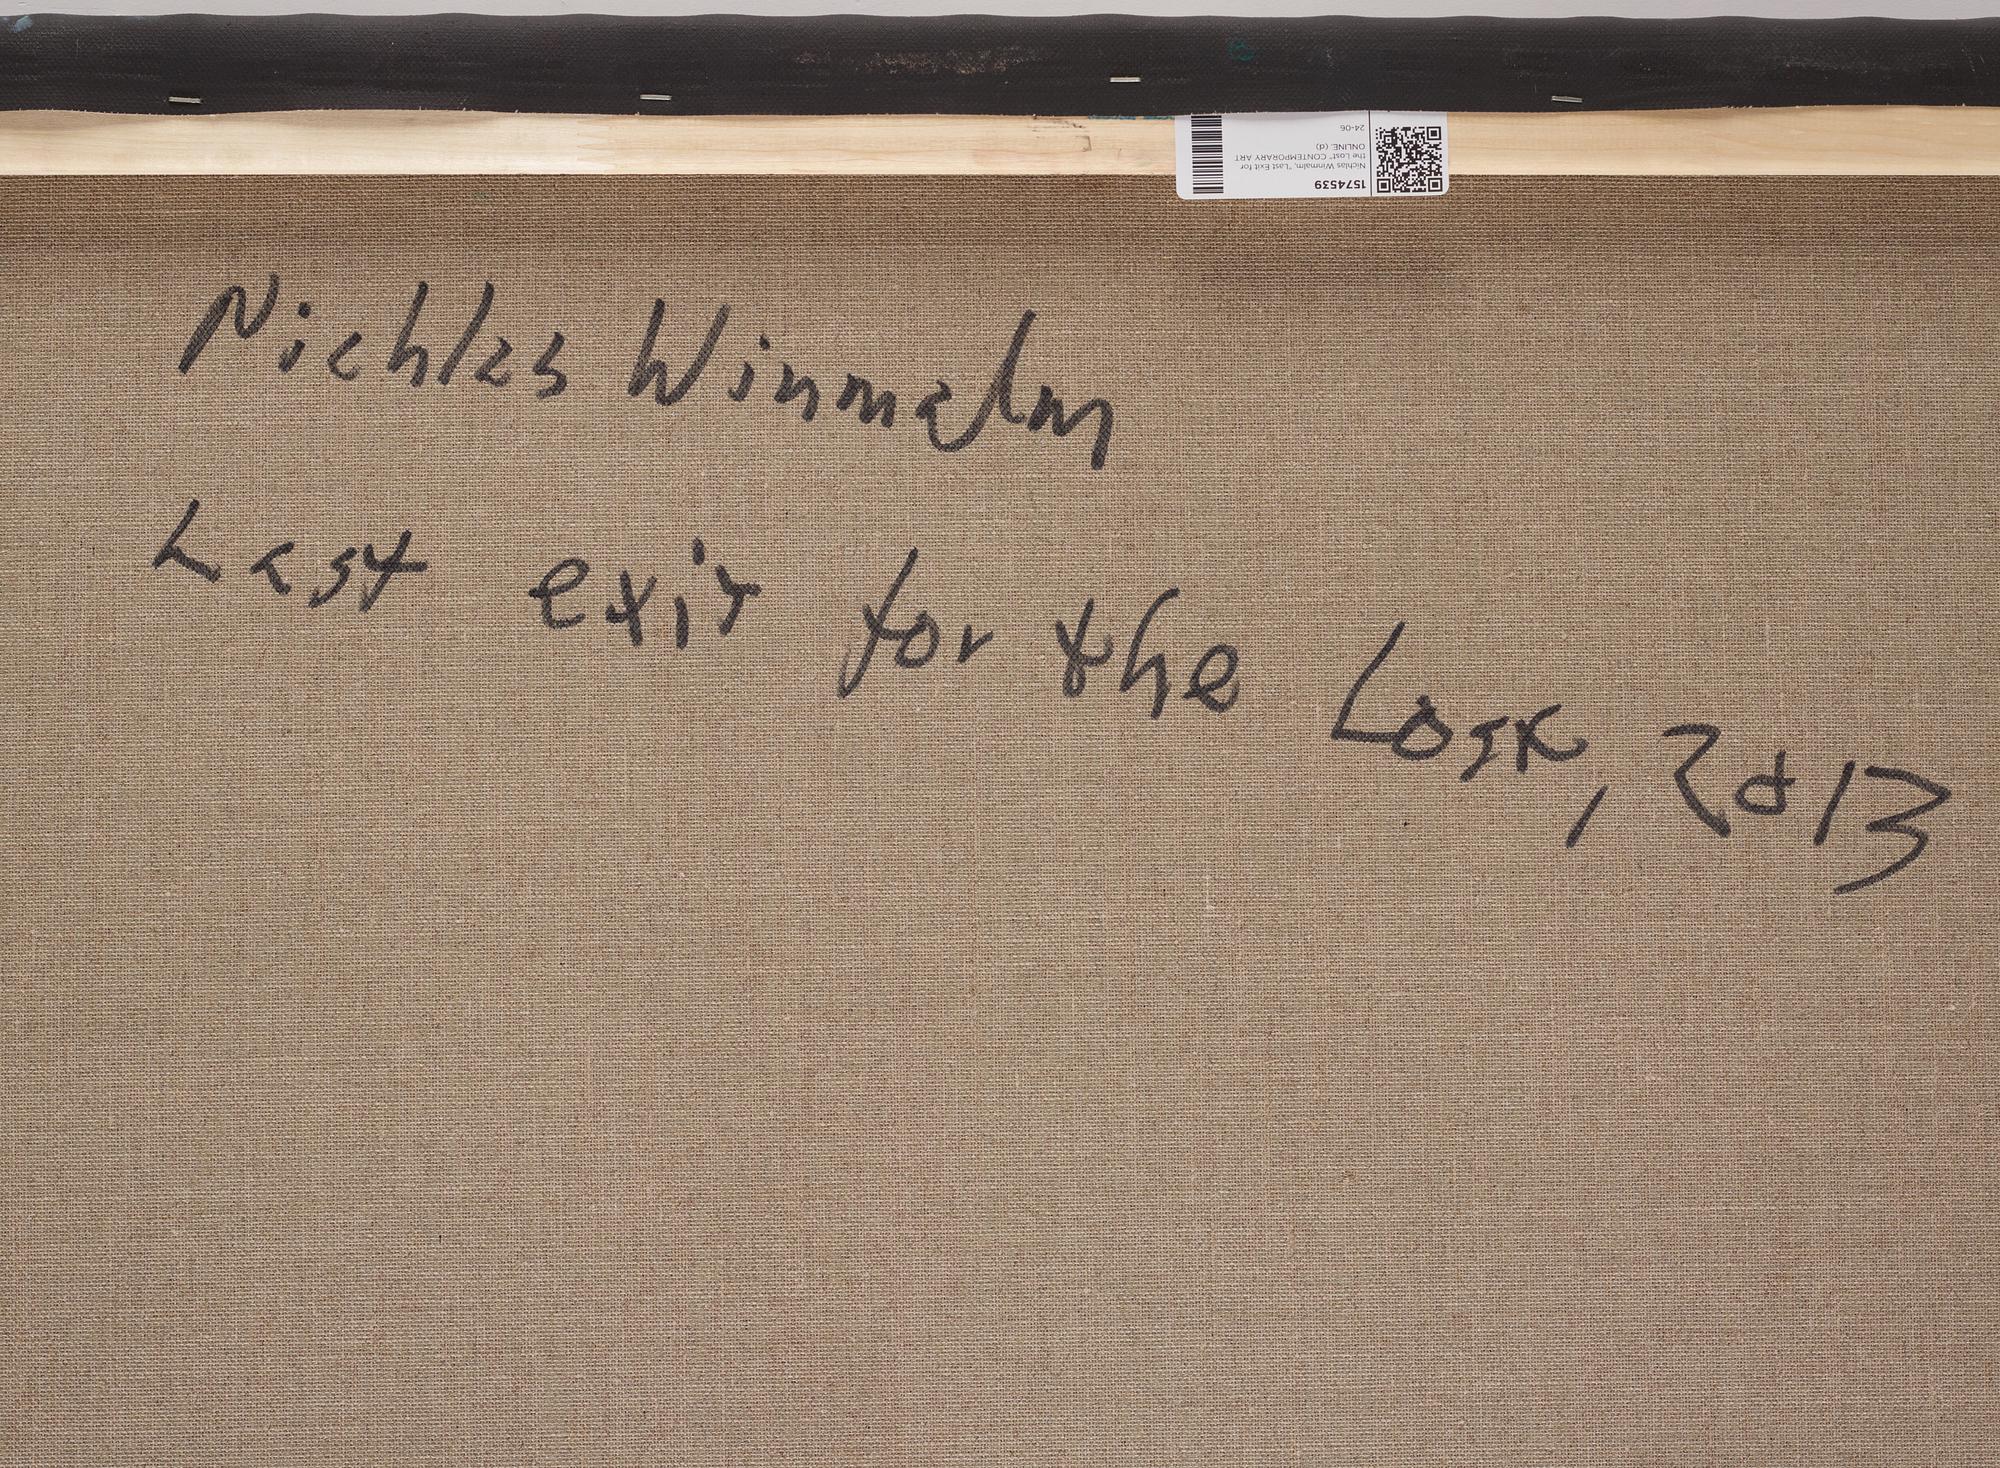 1574539
Nichlas Winmalm, "Last Exit for
the Lost" CONTEMPORARY ART
ONLINE (d)
24-06
Nichlas Winmalm
Last exit for the Lost, 2013